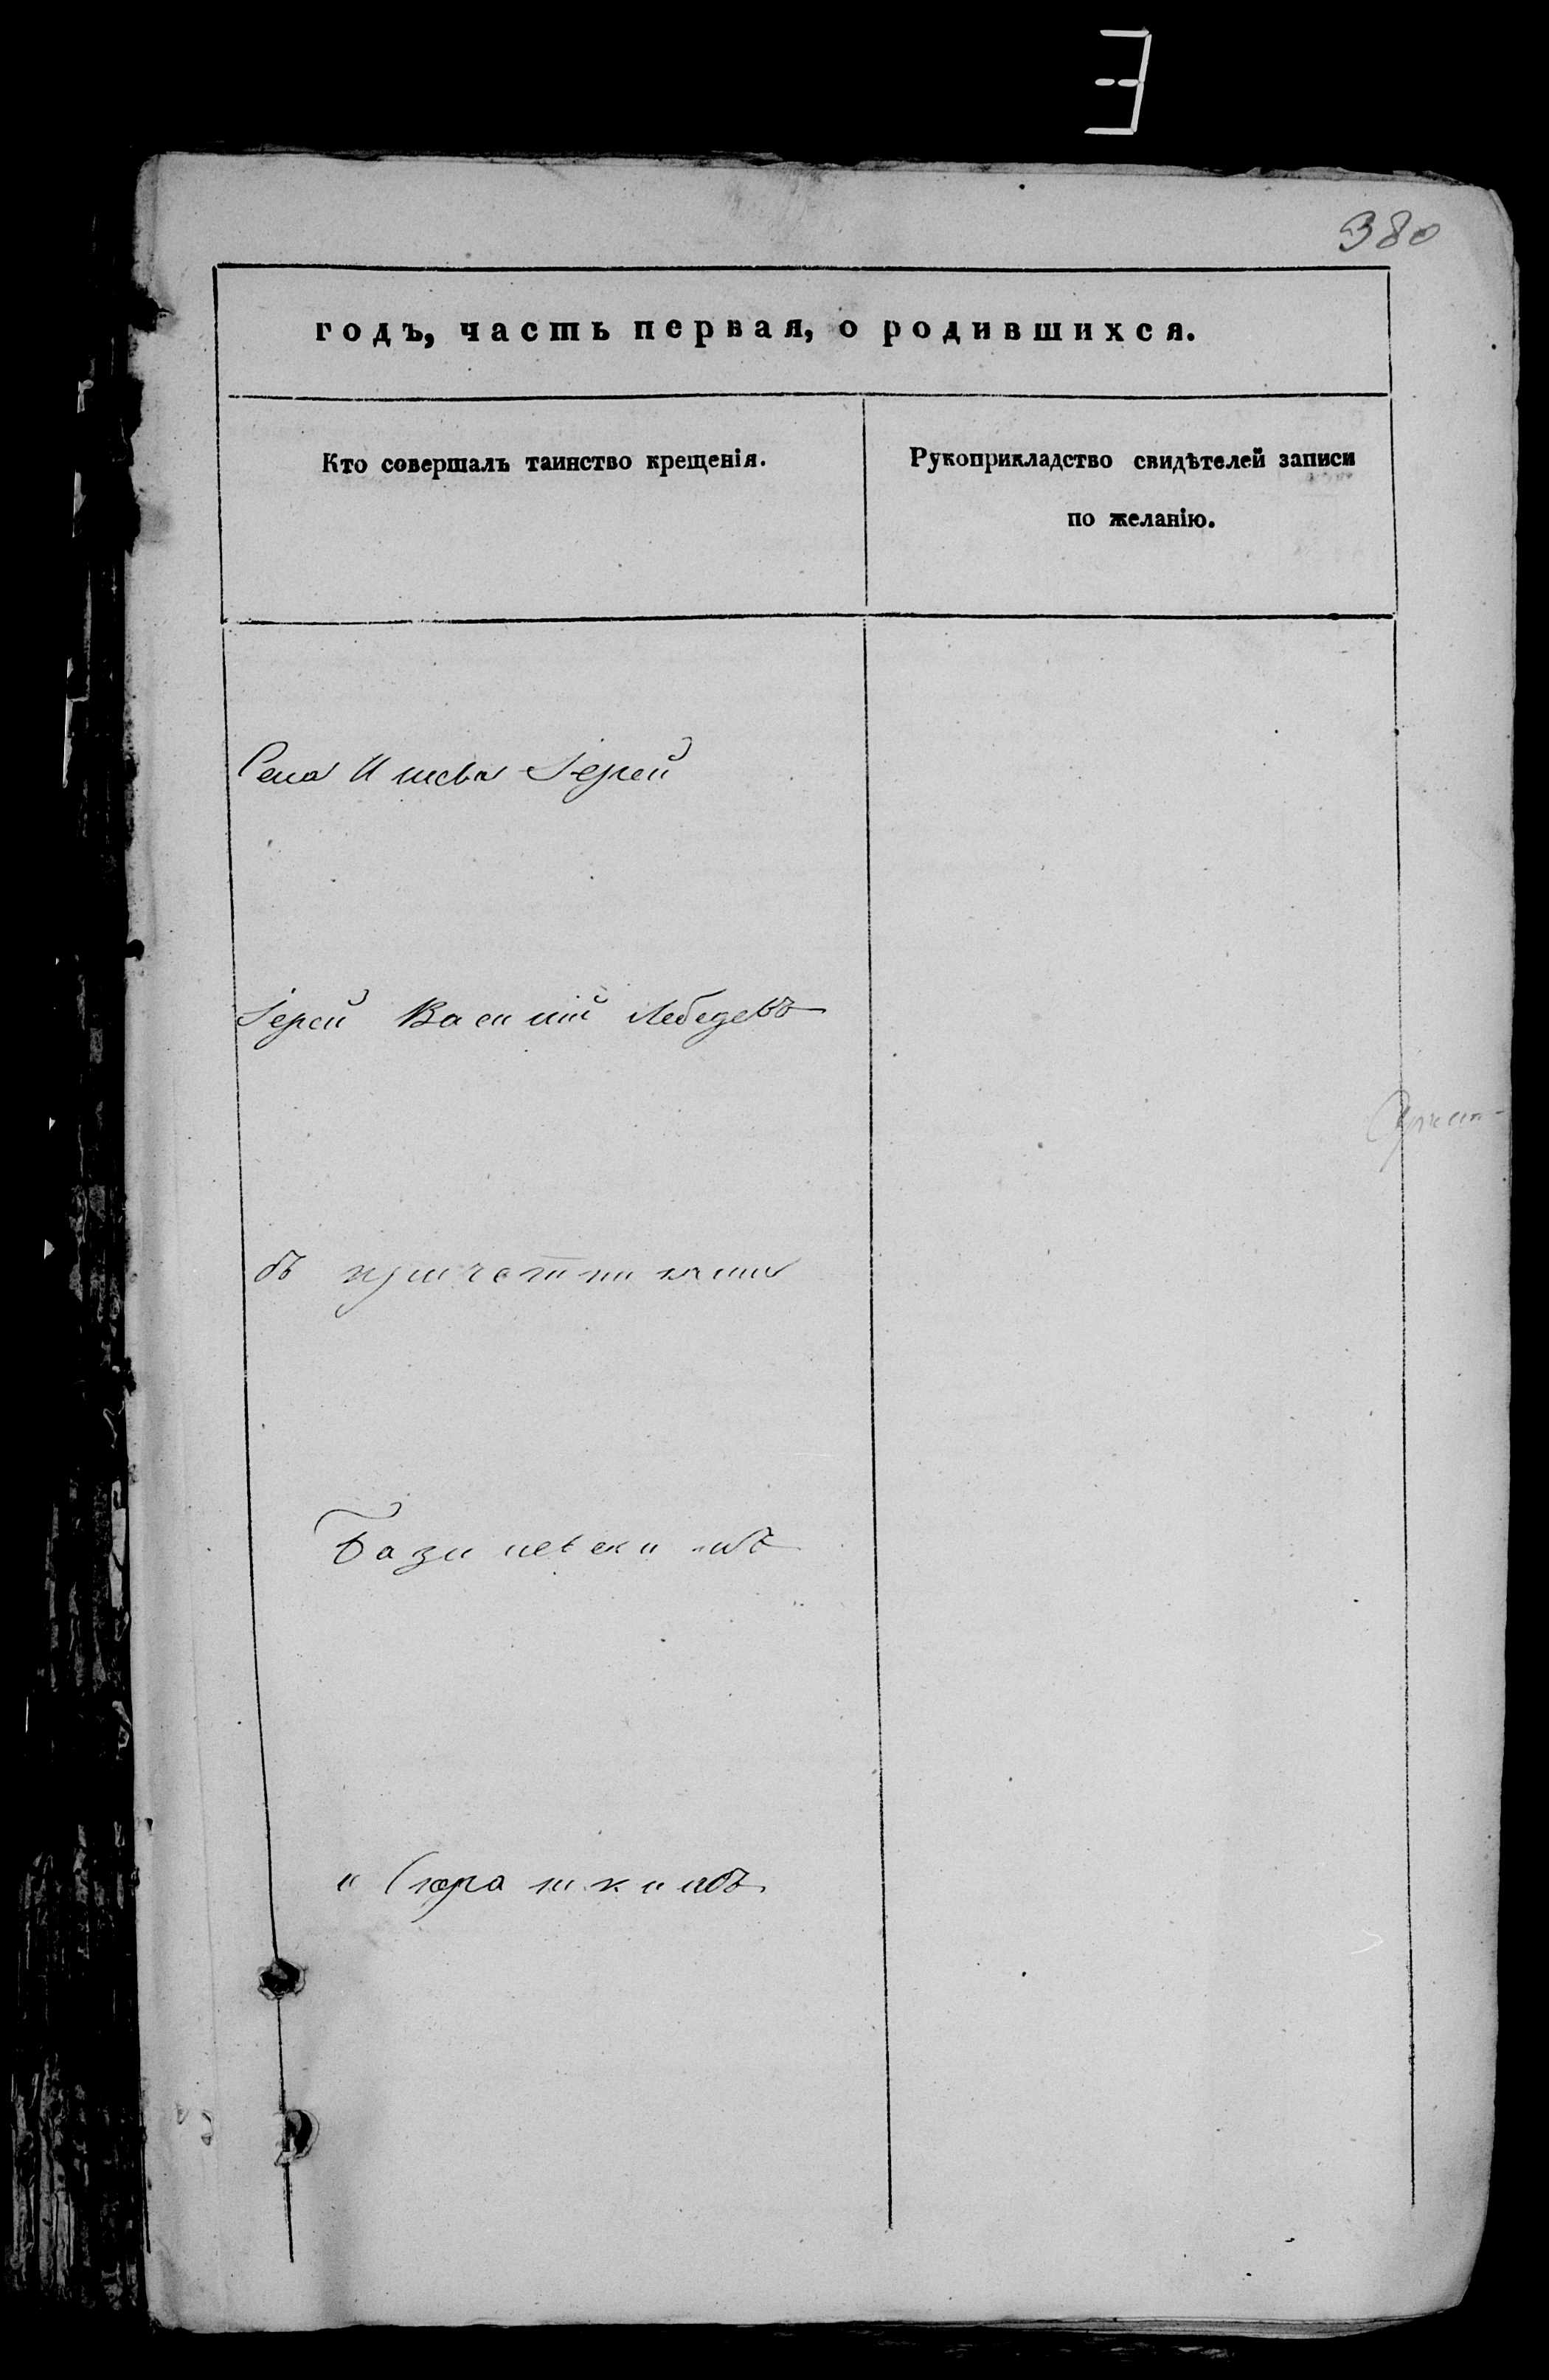 380
годъ, часть первая, о родившихся.
Кто совершалъ таинство крещенія.
Рукоприкладство свидѣтелей записи
по желанію.
Села Іерей
Іерей Василій Лебедевъ
съ причетниками
Базилевскимъ
и